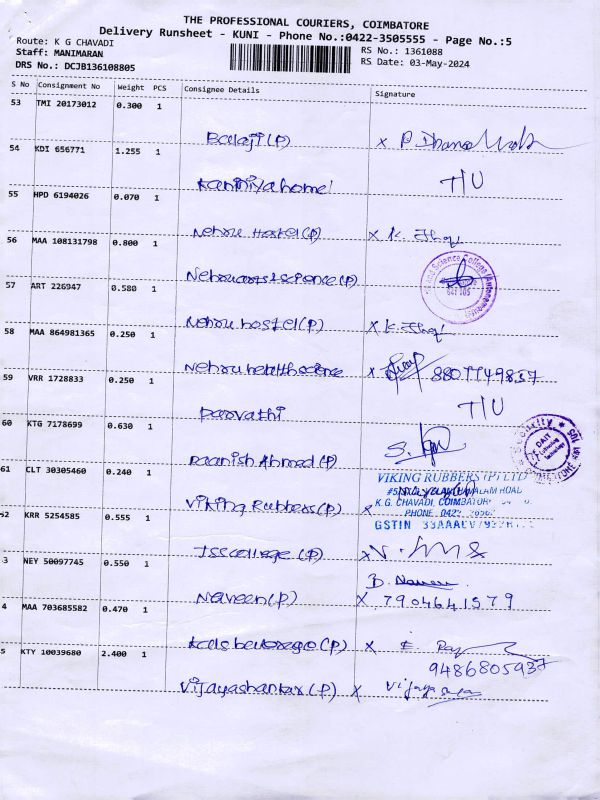 THE PROFESSIONAL COURIERS, COIMBATORE
Delivery Runsheet - KUNI - Phone No.:0422-3505555 - Page No.:5
Route: K G CHAVADI
Staff: MANIMARAN
RS No.: 1361088
DRS No.: DCJB136108805
RS Date: 03-May-2024
S No Consignment No Weight PCS Consignee Details Signature
53 TMI 20173012 0.300 1
Balaji (P) x
54 KDI 656771 1.255 1
Kaniniya home T/U
55 HPD 6194026 0.070 1
Nehru Hostel (P) x K.
56 MAA 108131798 0.800 1
Nehru arts & science (P)
and Science College (Autonomous)
641 105
57 ART 226947 0.580 1
Nehru hostel (P) x K.
58 MAA 864981365 0.250 1
Nehru health science x 8807749837
59 VRR 1728833 0.250 1
Parvathi T/U
60 KTG 7178699 0.630 1
Daanish Ahmed (P) S.
Security
DAIT
105
61 CLT 30305460 0.240 1
VIKING RUBBERS (P) LTD
K.G. CHAVADI, COIMBATORE
PHONE 0422
GSTIN 33AAACV
Viking Rubbers (P) x
52 KRR 5254585 0.555 1
JSS college (P) x V.
3 NEY 50097745 0.550 1
B. Naveen
Naveen (P) x 7904641579
4 MAA 703685582 0.470 1
Kals beverage (P) x
9486805937
5 KTY 10039680 2.400 1
Vijayashankar (P) x